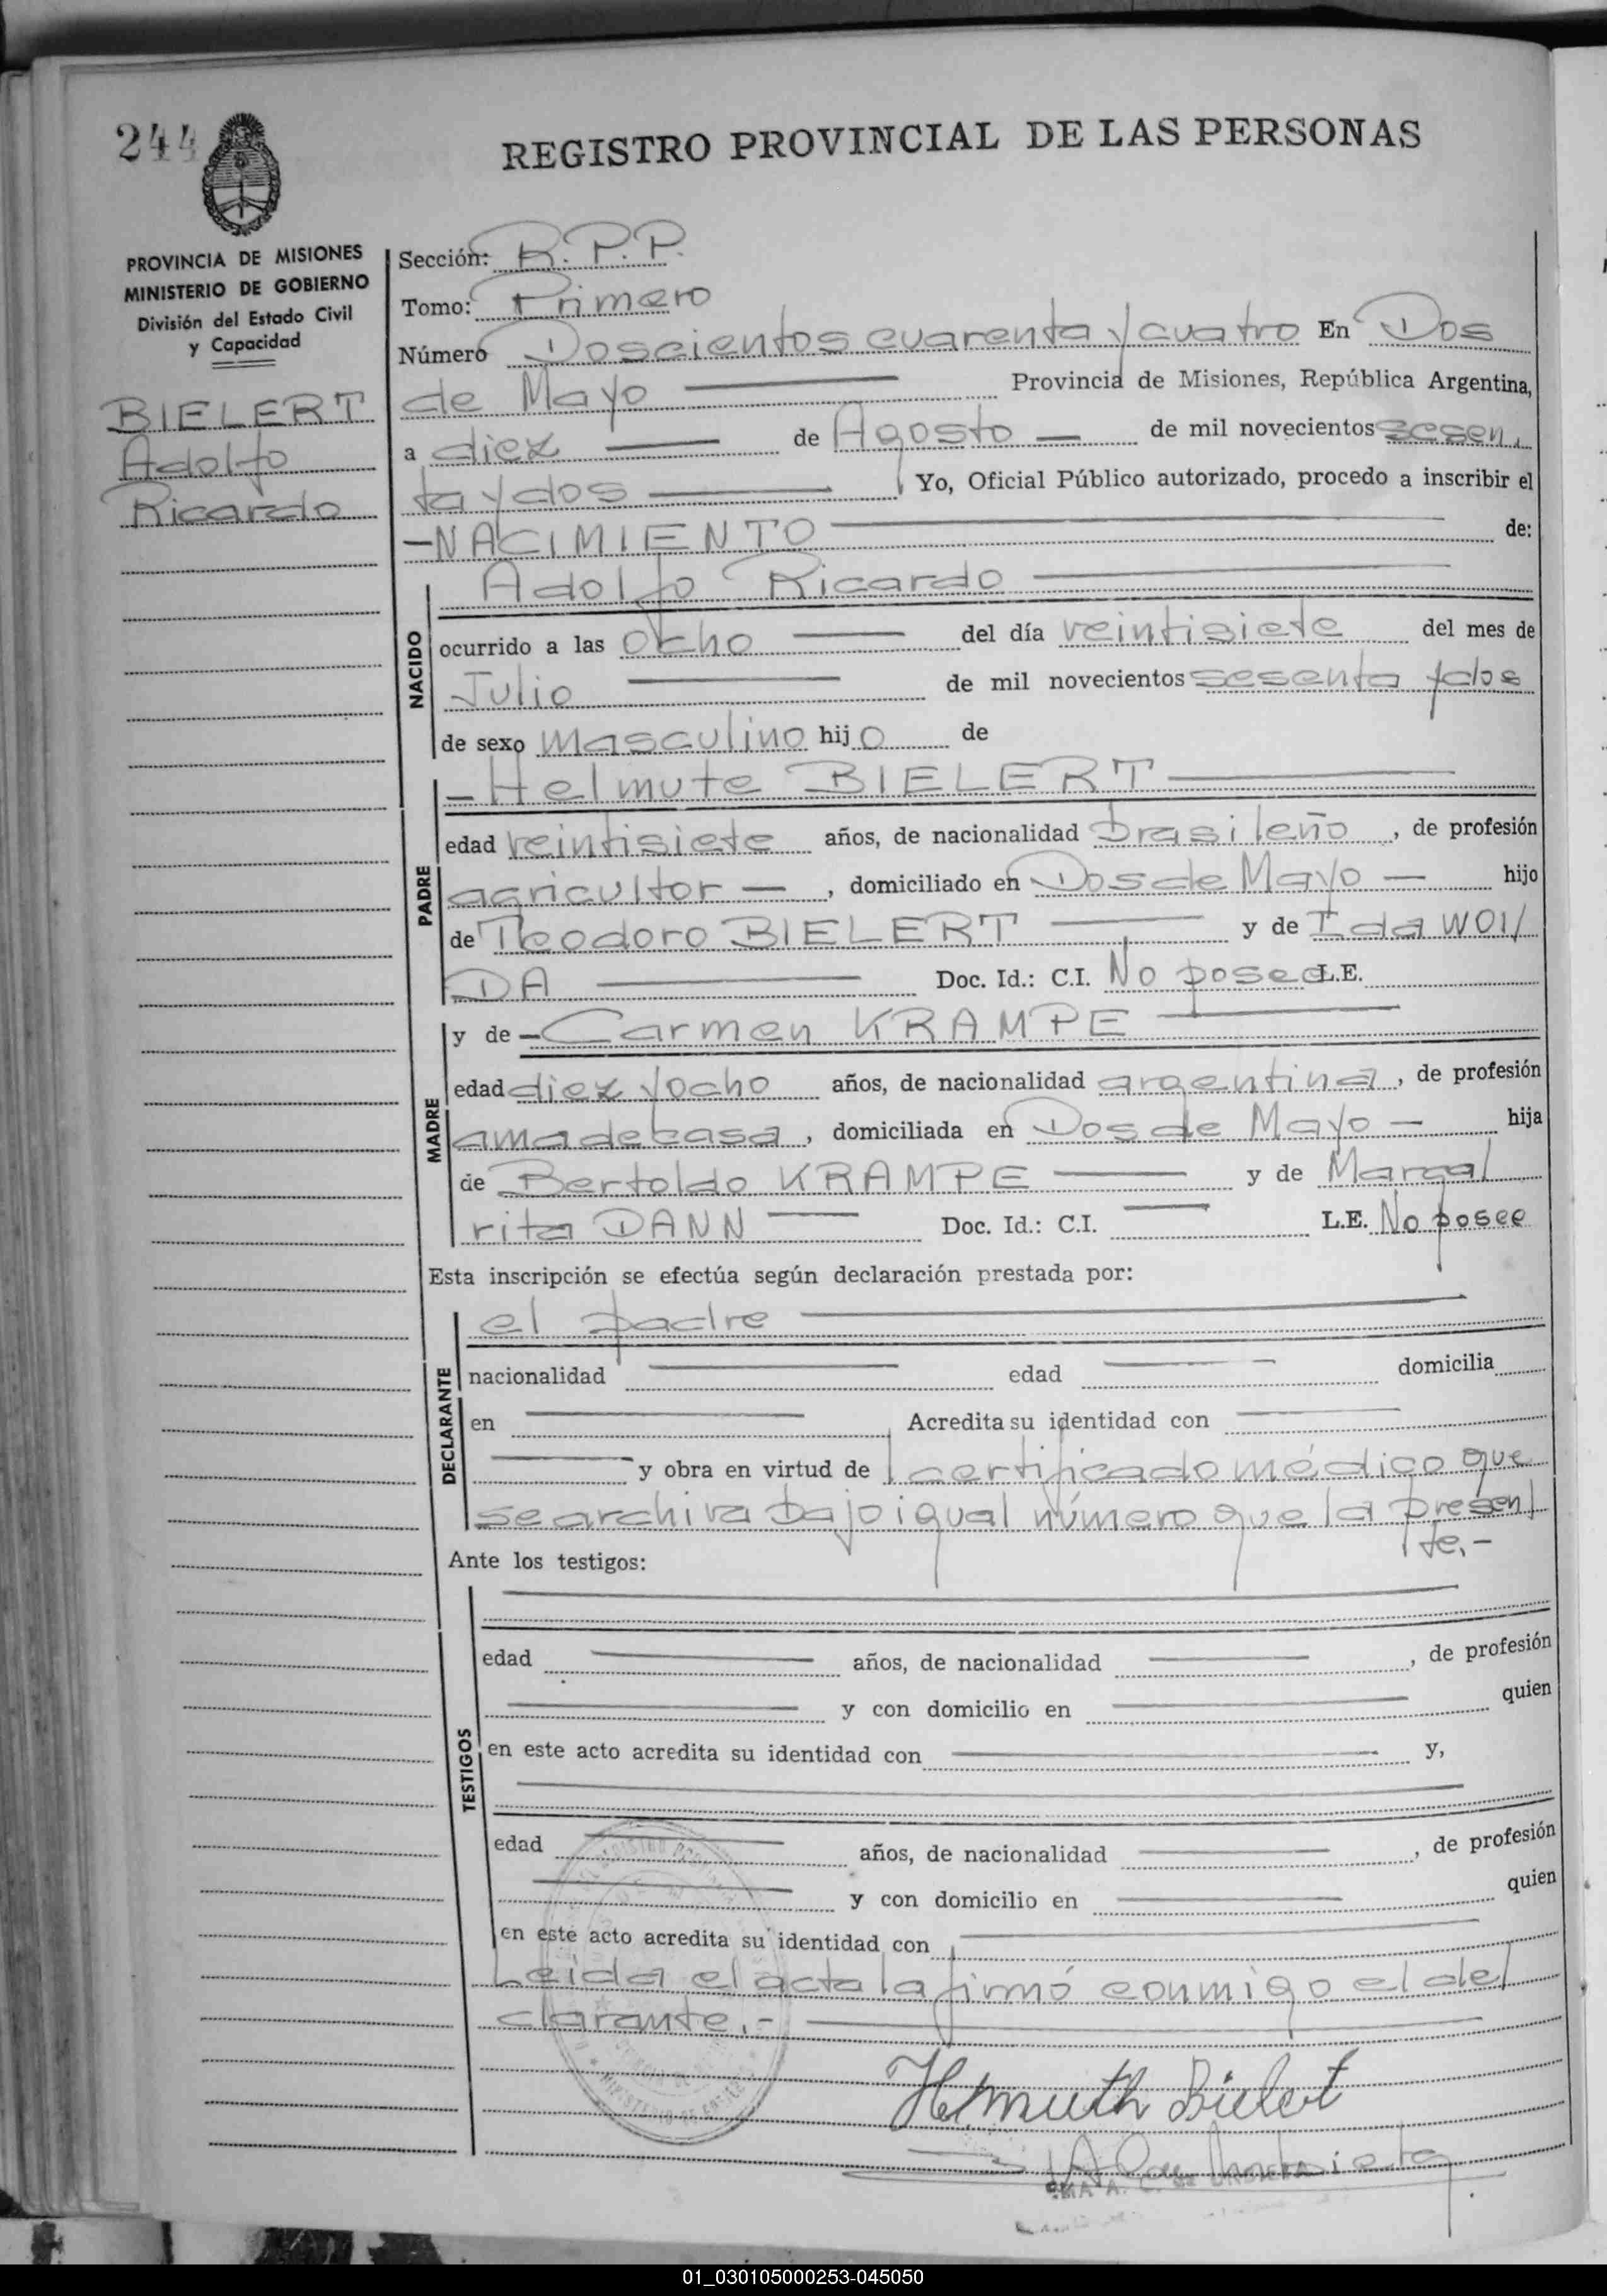 244
REGISTRO PROVINCIAL DE LAS PERSONAS
PROVINCIA DE MISIONES
MINISTERIO DE GOBIERNO
División del Estado Civil
y Capacidad
BIELERT
Adolfo
Ricardo
Sección: R.P.P.
Tomo: Primero
Número Doscientos cuarenta y cuatro En Dos
de Mayo Provincia de Misiones, República Argentina,
a diez de Agosto de mil novecientos sesen
ta y dos Yo, Oficial Público autorizado, procedo a inscribir el
-NACIMIENTO de:
NACIDO
Adolfo Ricardo
ocurrido a las ocho del día veintisiete del mes de
Julio de mil novecientos sesenta y dos
de sexo masculino hijo de
PADRE
- Helmute BIELERT
edad veintisiete años, de nacionalidad brasileño, de profesión
agricultor -, domiciliado en Dos de Mayo - hijo
de Teodoro BIELERT y de Ida WOI/
DA Doc. Id.: C.I. No posee L.E.
MADRE
y de - Carmen KRAMPE
edad diez y ocho años, de nacionalidad argentina, de profesión
ama de casa, domiciliada en Dos de Mayo - hija
de Bertoldo KRAMPE y de Marga/
rita DANN Doc. Id.: C.I. L.E. No posee
Esta inscripción se efectúa según declaración prestada por:
DECLARANTE
el padre
nacionalidad edad domicilia
en Acredita su identidad con
y obra en virtud de certificado médico que
se archiva bajo igual número que la presen/
te.-
Ante los testigos:
TESTIGOS
edad años, de nacionalidad , de profesión
y con domicilio en quien
en este acto acredita su identidad con y,
edad años, de nacionalidad , de profesión
y con domicilio en quien
en este acto acredita su identidad con
Leida el acta la firmó conmigo el de/
clarante.-
Helmuth Bielert
01_030105000253-045050